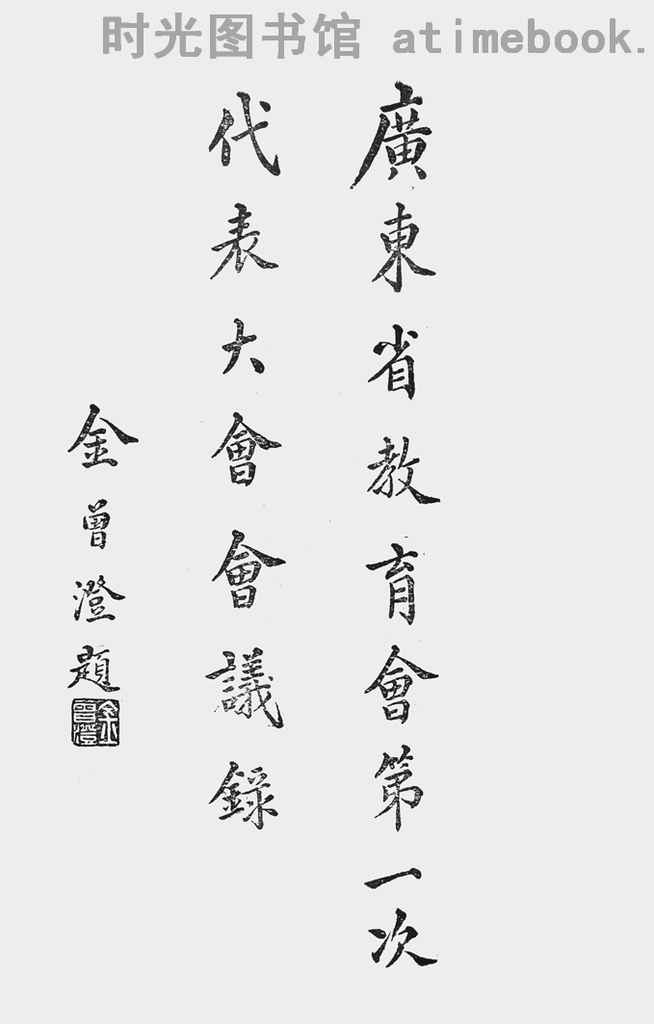 时光图书馆 atimebook.
廣東省教育會第一次
代表大會會議錄
金曾澄題
金曾澄